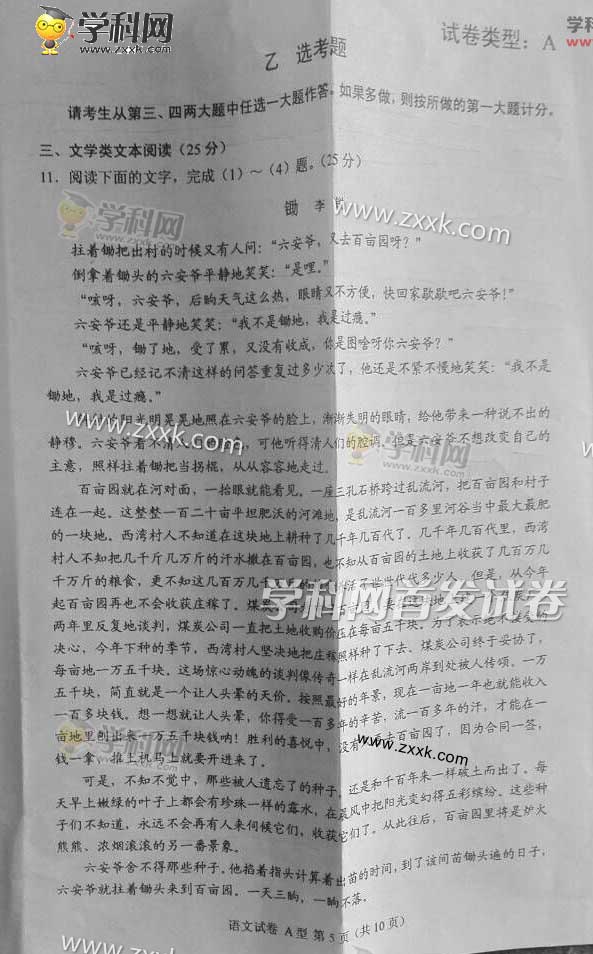 学科网
www.zxxk.com
学科
www
试卷类型：A
乙 选考题
请考生从第三、四两大题中任选一大题作答。如果多做，则按所做的第一大题计分。
三、文学类文本阅读（25分）
11．阅读下面的文字，完成（1）～（4）题。（25分）
学科网
www.zxxk.com
锄 李
www.zxxk.com
拄着锄把出村的时候又有人问：“六安爷，又去百亩园呀？”
倒拿着锄头的六安爷平静地笑笑：“是哩。”
“咳呀，六安爷，后晌天气这么热，眼睛又不方便，快回家歇歇吧六安爷！”
六安爷还是平静地笑笑：“我不是锄地，我是过瘾。”
“咳呀，锄了地，受了累，又没有收成，你是图啥呀你六安爷？”
六安爷已经记不清这样的问答重复过多少次了，他还是不紧不慢地笑笑：“我不是
锄地，我是过瘾。”
阳光明晃晃地照在六安爷的脸上，渐渐失明的眼睛，给他带来一种说不出的
www.zxxk.com
学科网
www.zxxk.com
静穆。六安爷看不清人，可他听得清人们的腔调，但是六安爷不想改变自己的
主意，照样拄着锄把当拐棍，从从容容地走过。
百亩园就在河对面，一抬眼就能看见。一座三孔石桥跨过乱流河，把百亩园和村子
连在一起。这整整一百二十亩平坦肥沃的河滩地，是乱流河一百多里河谷当中最大最肥
的一块地。西湾村人不知道在这块地上耕种了几千年几百代了。几千年几百代里，西湾
村人不知把几千斤几万斤的汗水撒在百亩园，也不知从百亩园的土地上收获了几百万几
千万斤的粮食，更不知这几百万几千万斤的世世代代多少人。但是，从今年
学科网首发试卷
起百亩园再也不会收获庄稼了。煤炭公
两年里反复地谈判，煤炭公司一直把土地收购价压在每亩五千块。为了表示绝不接受的
决心，今年下种的季节，西湾村人坚决地把庄稼照样种了下去。煤炭公司终于妥协了，
每亩地一万五千块。这场惊心动魄的谈判像传奇一样在乱流河两岸到处被人传颂。一万
五千块，简直就是一个让人头晕的天价。按照最好的年景，现在一亩地一年也就能收入
一百多块钱。想一想就让人头晕，你得受一百多年的辛苦，流一百多年的汗，才能在一
亩地里刨出来一万五千块钱呐！胜利的喜悦中，没有人去百亩园了，因为合同一签，
www.zxxk.com
钱一拿，推土机马上就要开进来了。
可是，不知不觉中，那些被人遗忘了的种子，还是和千百年来一样破土而出了。每
天早上嫩绿的叶子上都会有珍珠一样的露水，在晨风中把阳光变幻得五彩缤纷。这些种
子们不知道，永远不会再有人来伺候它们，收获它们了。从此往后，百亩园里将是炉火
熊熊、浓烟滚滚的另一番景象。
六安爷舍不得那些种子。他掐着指头计算着出苗的时间，到了该间苗锄头遍的日子，
六安爷就拄着锄头来到百亩园。一天三晌，一晌不落。
语文试卷 A型 第5页（共10页）
www.zxxk.com
学科网
www.zxxk.com